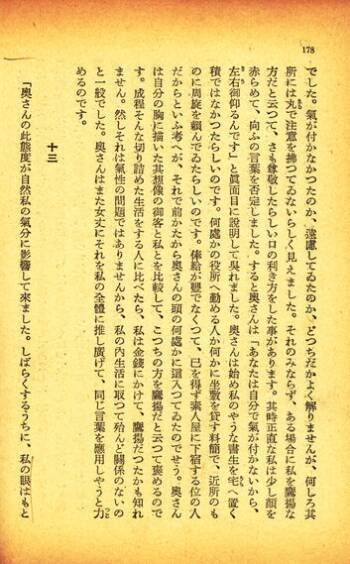 178
でした。氣が付かなかつたのか、遠慮してゐたのか、どつちだかよく解りませんが、何しろ其
所には丸で注意を拂つてゐないらしく見えました。それのみならず、ある場合に私を鷹揚な
方だと云つて、さも尊敬したらしい口の利き方をした事があります。其時正直な私は少し顔を
赤らめて、向ふの言葉を否定しました。すると奥さんは「あなたは自分で氣が付かないから、
左右御仰るんです」と眞面目に説明して呉れました。奥さんは始め私のやうな書生を宅へ置く
積ではなかつたらしいのです。何處かの役所へ勤める人か何かに坐敷を貸す料簡で、近所のも
のに周旋を頼んでゐたらしいのです。俸給が豐でなくつて、已を得ず素人屋に下宿する位の人
だからといふ考へが、それで前かたから奥さんの頭の何處かに這入つてゐたのでせう。奥さん
は自分の胸に描いた其想像の御客と私とを比較して、こつちの方を鷹揚だと云つて褒めるので
す。成程そんな切り詰めた生活をする人に比べたら、私は金錢にかけて、鷹揚だつたかも知れ
ません。然しそれは氣性の問題ではありませんから、私の內生活に取つて殆んど關係のないの
と一般でした。奥さんはまた女丈にそれを私の全體に推し廣げて、同じ言葉を應用しやうと力
めるのです。
十三
「奥さんの此態度が自然私の氣分に影響して來ました。しばらくするうちに、私の眼はもと